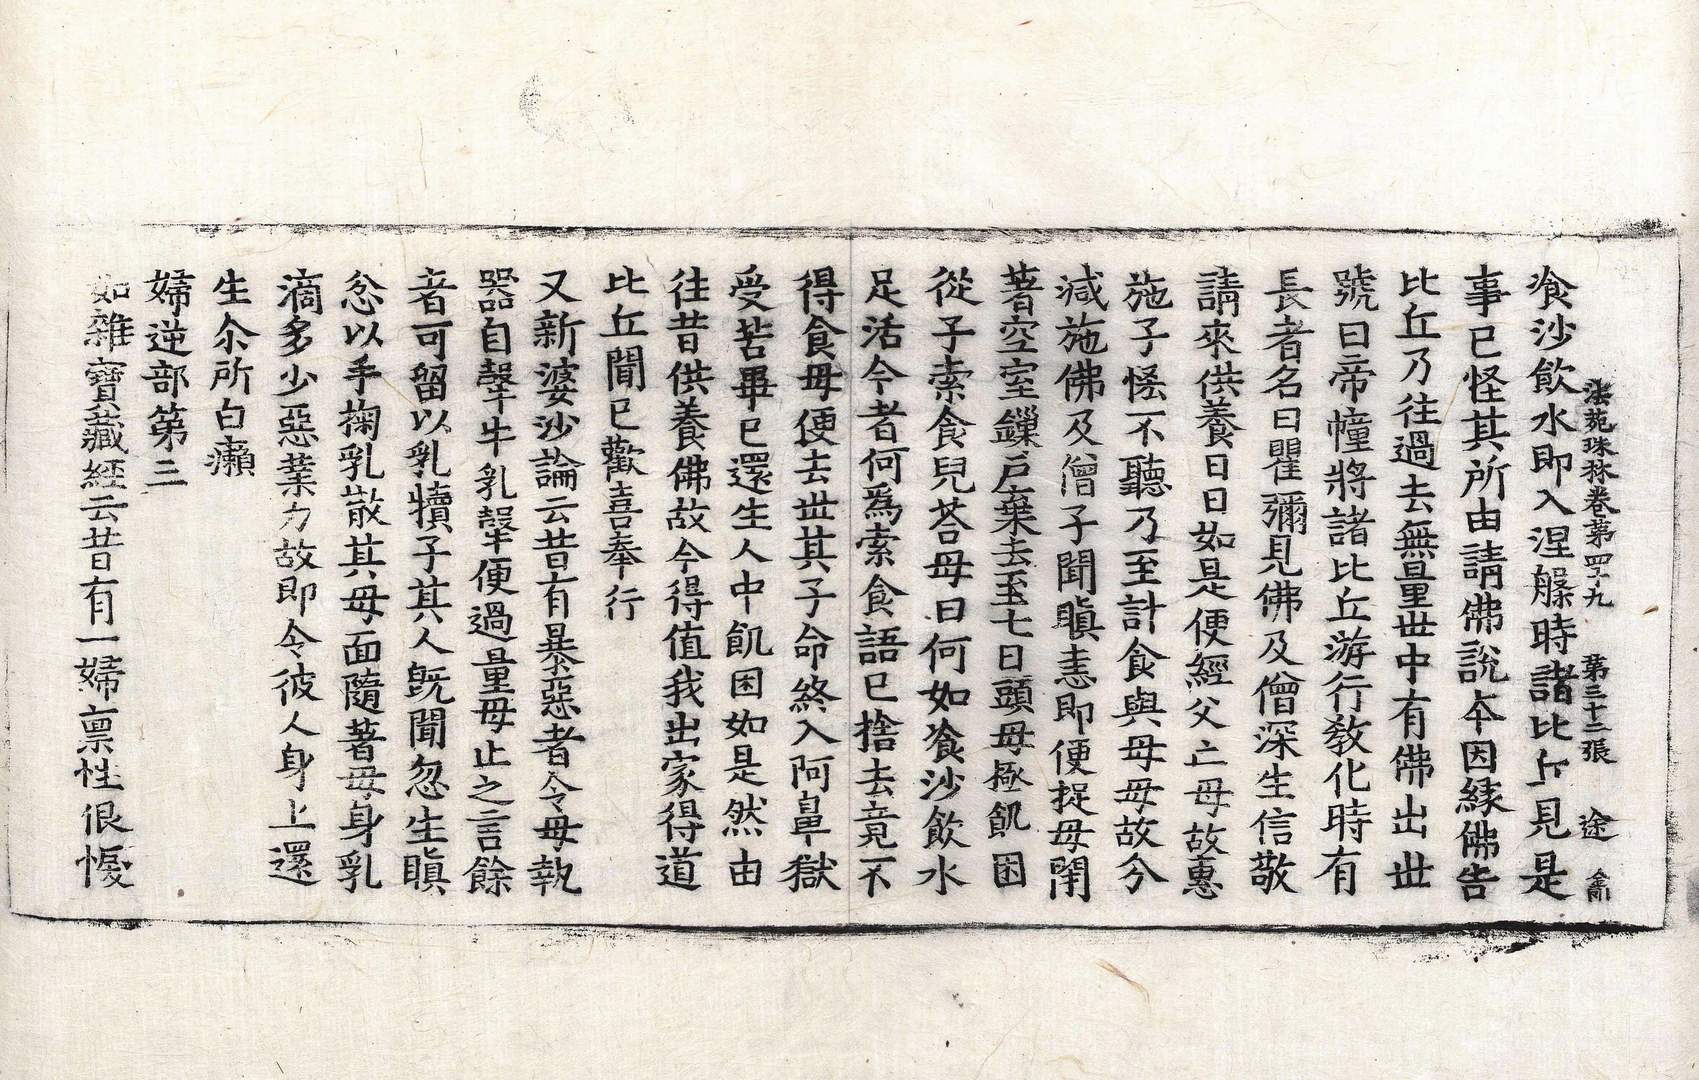 法苑珠林卷第四十九 第三十二張 途
飡沙飲水即入涅槃時諸比丘見是
事已怪其所由請佛說夲因緣佛告
比丘乃往過去無量世中有佛出世
號曰帝幢將諸比丘游行教化時有
長者名曰瞿彌見佛及僧深生信敬
請來供養日日如是便經父亡母故惠
施子恡不聽乃至計食與母母故分
減施佛及僧子聞瞋恚即便捉母閉
著空室鏁戶棄去至七日頭母極飢困
從子索食兒荅母曰何如飡沙飲水
足活今者何為索食語已捨去竟不
得食母便去世其子命終入阿鼻獄
受苦畢已還生人中飢困如是然由
往昔供養佛故今得值我出家得道
比丘聞已歡喜奉行
又新婆沙論云昔有暴惡者令母執
器自𤚲牛乳𤚲便過量母止之言餘
者可留以乳犢子其人旣聞忽生瞋
忿以手掬乳散其母面隨著母身乳
滴多少惡業力故即令彼人身上還
生尒所白癩
婦逆部第三
如雜寶藏經云昔有一婦禀性佷慢